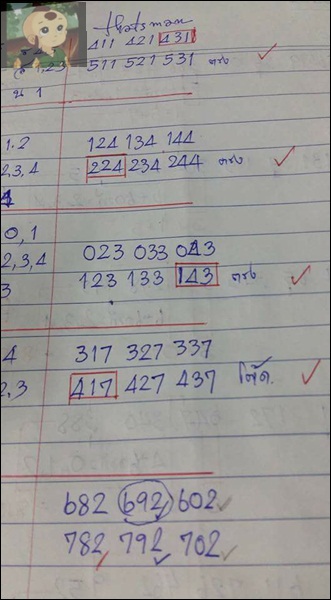 thatsman
411 421 431
1,23 511 521 531 ตรง
น 1
1.2 124 134 144
2,3,4 224 234 244 ตรง
4
0,1
2,3,4 023 033 043
3 123 133 143 ตรง
4 317 327 337
2,3 417 427 437 โต๊ด.
682 692 602
782 792 702